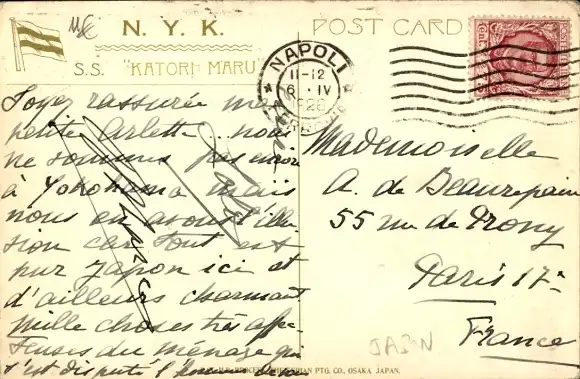 N. Y. K.
S.S. "KATORI MARU"
POST CARD
NAPOLI
11-12
6 · IV
1926
Soyez rassurée ma
petite Arlette.. nous
ne sommes pas encore
à Yokohama mais
nous en avons l'illu-
sion car tout est
pur Japon ici et
d'ailleurs charmant
Mille choses très affec-
tueuses du ménage qui
s'est disputé l'honneur de
Mademoiselle
A. de Beaurepaire
55 rue de Prony
Paris 17e
France
JAPAN
PTG. CO., OSAKA JAPAN.